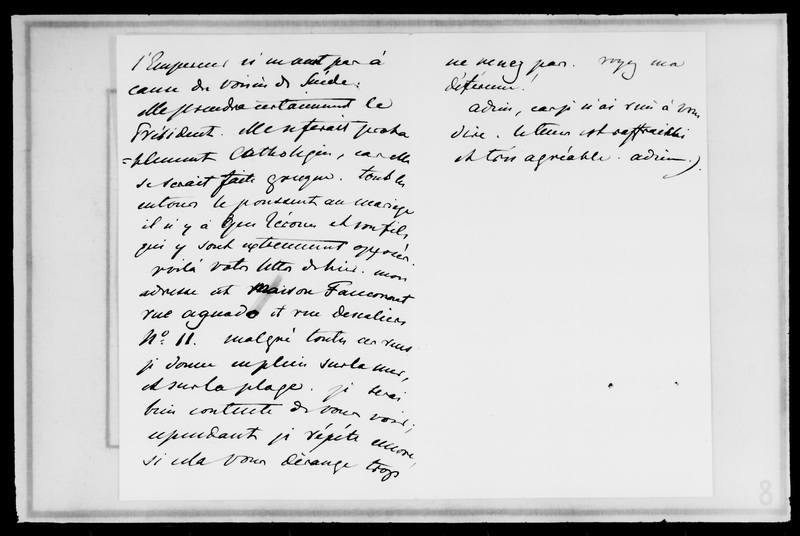 l'Empereur ni mant par à
cause du voisin de Suède.
elle prendra certainement le
Président. elle se ferait proba
=blement Catholique, car elle
se serait faite grecque. tous les
entours le poussent au mariage
il n'y a que Jérôme et son fils,
qui y sont extrêmement opposés.
voilà votre lettre de hier. mon
adresse est maison Fauconnet
rue aguado et rue descaliers
No. 11. malgré toutes ces rues
je donne en plein sur la mer,
et sur la plage. je serai
bien contente de vous voir;
cependant je répète encore,
si cela vous dérange trop
ne venez pas. voyez ma
adieu, car je n'ai rien à vous
dire. le tems est raffraichi
et très agréable. adieu.
8